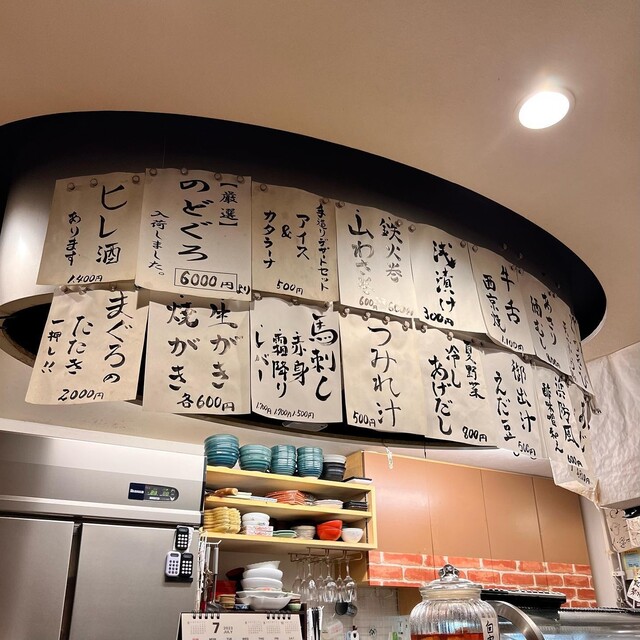 ヒレ酒
あります
1400円
【厳選】
のどぐろ
入荷しました。
6000円より
手造りデザートセット
アイス
&
カタラーナ
500円
鉄火巻
山わさび
浅漬け
300円
牛舌
西京焼
1,100円
あさり
酒むし
まぐろの
たたき
一押し!!
2000円
生がき
焼がき
各600円
馬刺し
赤身
霜降り
レバー
つみれ汁
500円
夏野菜
冷し
あげだし
800円
御出汁
えんだ豆
500円
7
2023
JULY